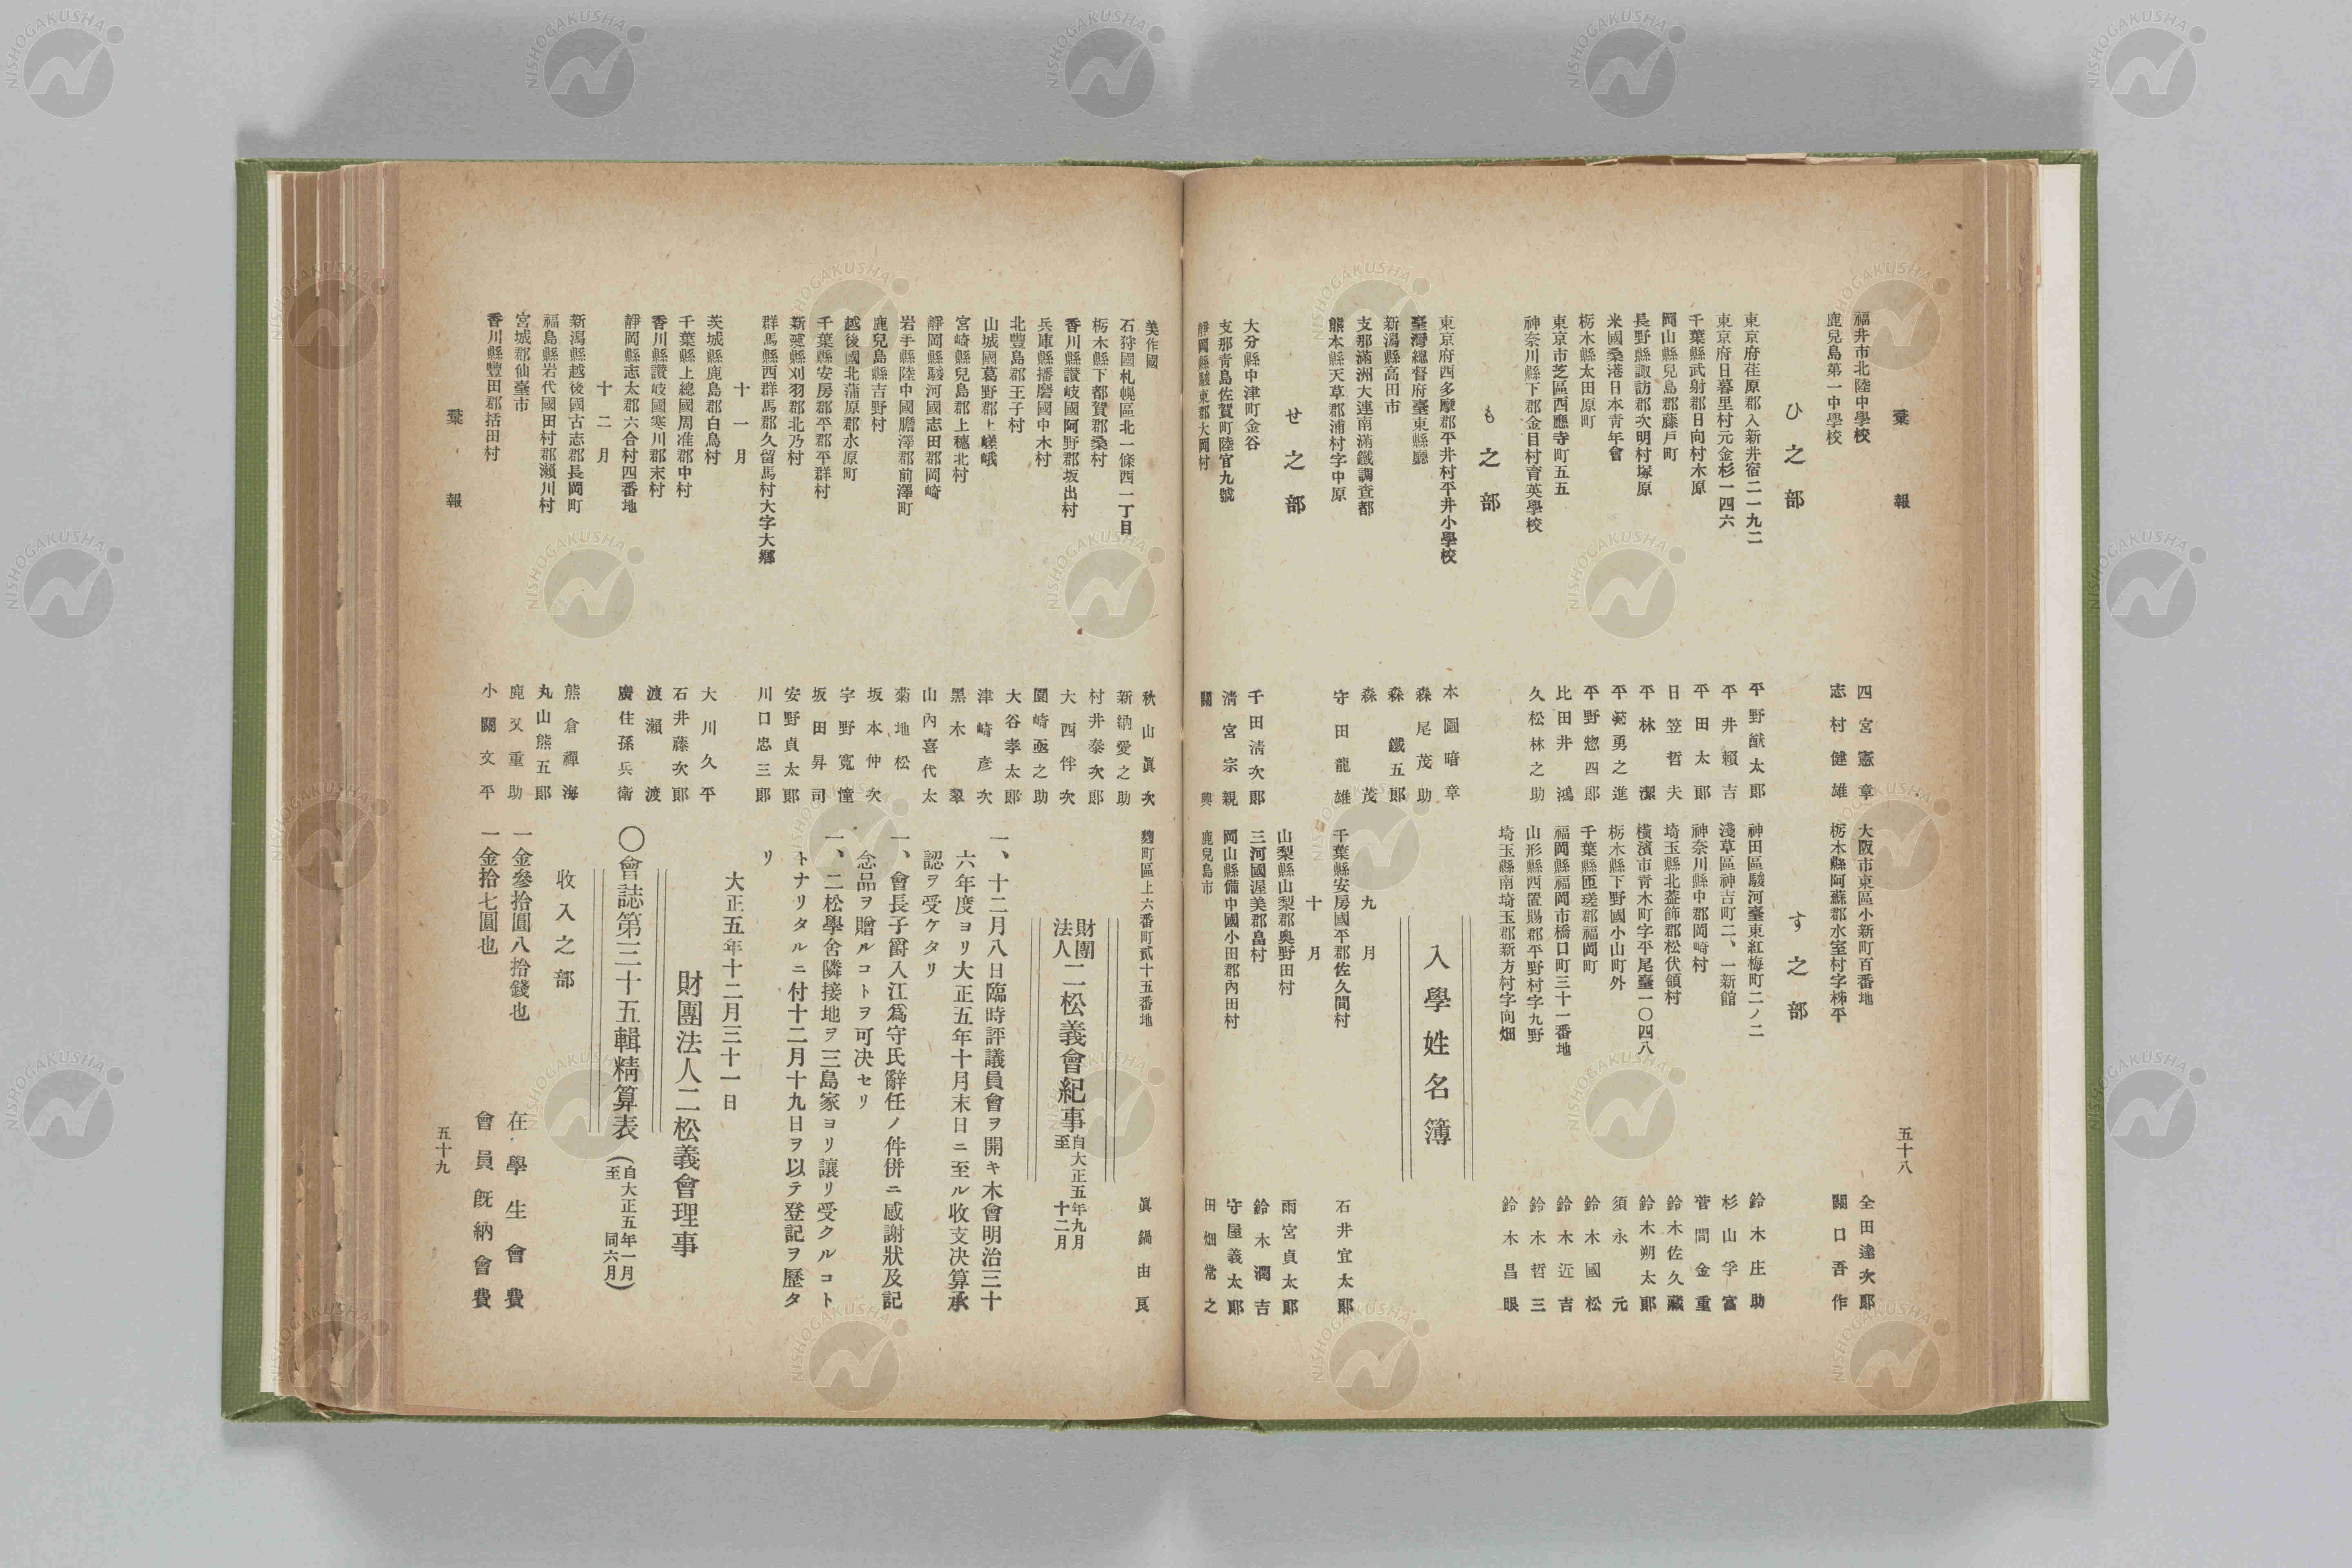 彙報
五十八
福井市北陸中學校 四宮憲章
鹿兒島第一中學校 志村健雄
ひ之部
東京府荏原郡入新井宿二一九二 平野猷太郞
東京府日暮里村元金杉一四六 平井賴吉
千葉縣武射郡日向村木原 平田太郞
岡山縣兒島郡藤戸町 日笠哲夫
長野縣諏訪郡次明村塚原 平林潔
米國桑港日本靑年會 平菀勇之進
栃木縣太田原町 平野惣四郞
東京市芝區西應寺町五五 比田井鴻
神奈川縣下郡金目村育英學校 久松林之助
も之部
東京府西多摩郡平井村平井小學校 本圖暗章
臺灣總督府臺東縣廳 森尾茂助
新潟縣高田市 森鐵五郞
支那滿洲大連南滿鐵調查部 森茂
熊本縣天草郡浦村字中原 守田龍雄
せ之部
大分縣中津町金谷 千田淸次郞
支那靑島佐賀町陸官九號 淸宮宗親
靜岡縣駿東郡大岡村 關興
大阪市東區小新町百番地 全田達次郞
栃木縣阿蘇郡水室村字柹平 關口吾作
す之部
神田區駿河臺東紅梅町二ノ二 鈴木庄助
淺草區神吉町二、一新館 杉山孚富
神奈川縣中郡岡崎村 菅間金重
埼玉縣北葢飾郡松伏領村 鈴木佐久藏
橫濱市靑木町字平尾臺一〇四八 鈴木朔太郞
栃木縣下野國小山町外 須永元
千葉縣匝瑳郡福岡町 鈴木國松
福岡縣福岡市橋口町三十一番地 鈴木近吉
山形縣西置賜郡平野村字九野 鈴木哲三
埼玉縣南埼玉郡新方村字向畑 鈴木昌眼
入學姓名簿
九月
千葉縣安房國平郡佐久間村 石井宜太郞
十月
山梨縣山梨郡奧野田村 雨宮貞太郞
三河國渥美郡畠村 鈴木潤吉
岡山縣備中國小田郡內田村 守屋義太郞
鹿兒島市 田畑常之
美作國 秋山眞次
石狩國札幌區北一條西一丁目 新納愛之助
栃木縣下都賀郡桑村 村井泰次郞
香川縣讃岐國阿野郡坂出村 大西伴次
兵庫縣播磨國中木村 圍崎亟之助
北豐島郡王子村 大谷孝太郞
山城國葛野郡上嵯峨 津崎彥次
宮崎縣兒島郡上穗北村 黑木翠
靜岡縣駿河國志田郡岡崎 山內喜代太
岩手縣陸中國膽澤郡前澤町 菊地松
鹿兒島縣吉野村 坂本仲次
越後國北蒲原郡水原町 宇野寬憧
千葉縣安房郡平郡平群村 坂田昇司
新潟縣刈羽郡北乃村 安野貞太郞
群馬縣西群馬郡久留馬村大字大鄕 川口忠三郞
十一月
茨城縣鹿島郡白鳥村 大川久平
千葉縣上總國周准郡中村 石井藤次郞
香川縣讃岐國寒川郡末村 渡瀨渡
靜岡縣志太郡六合村四番地 廣住孫兵衞
十二月
新潟縣越後國古志郡長岡町 熊倉禪海
福島縣岩代國田村郡瀨川村 丸山熊五郞
宮城郡仙臺市 鹿又重助
香川縣豐田郡括田村 小關文平
麴町區上六番町貳十五番地 眞鍋由良
財團法人二松義會紀事 自大正五年九月至十二月
一、十二月八日臨時評議員會ヲ開キ木會明治三十
六年度ヨリ大正五年十月末日ニ至ル收支決算承
認ヲ受ケタリ
一、會長子爵入江爲守氏辭任ノ件併ニ感謝狀及記
念品ヲ贈ルコトヲ可決セリ
一、二松學舍隣接地ヲ三島家ヨリ讓リ受クルコト
トナリタルニ付十二月十九日ヲ以テ登記ヲ歷タ
リ
大正五年十二月三十一日
財團法人二松義會理事
〇會誌第三十五輯精算表(自大正五年一月至同六月)
收入之部
一金參拾圓八拾錢也 在學生會費
一金拾七圓也 會員旣納會費
彙報
五十九
NISHOGAKUSHA